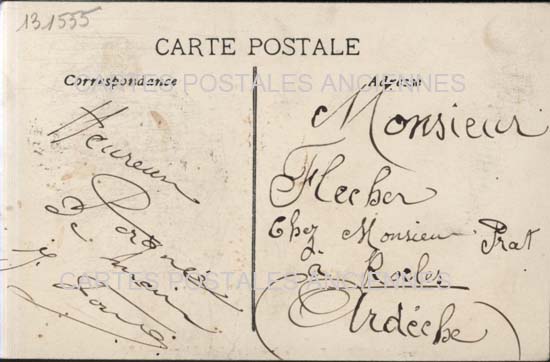 131555
CARTE POSTALE
Correspondance
Adresse
CARTES POSTALES ANCIENNES
Heureuse
De main
Monsieur
Flecher
Chez Monsieur Prat
à
(Ardèche)
CARTES POSTALES ANCIENNES